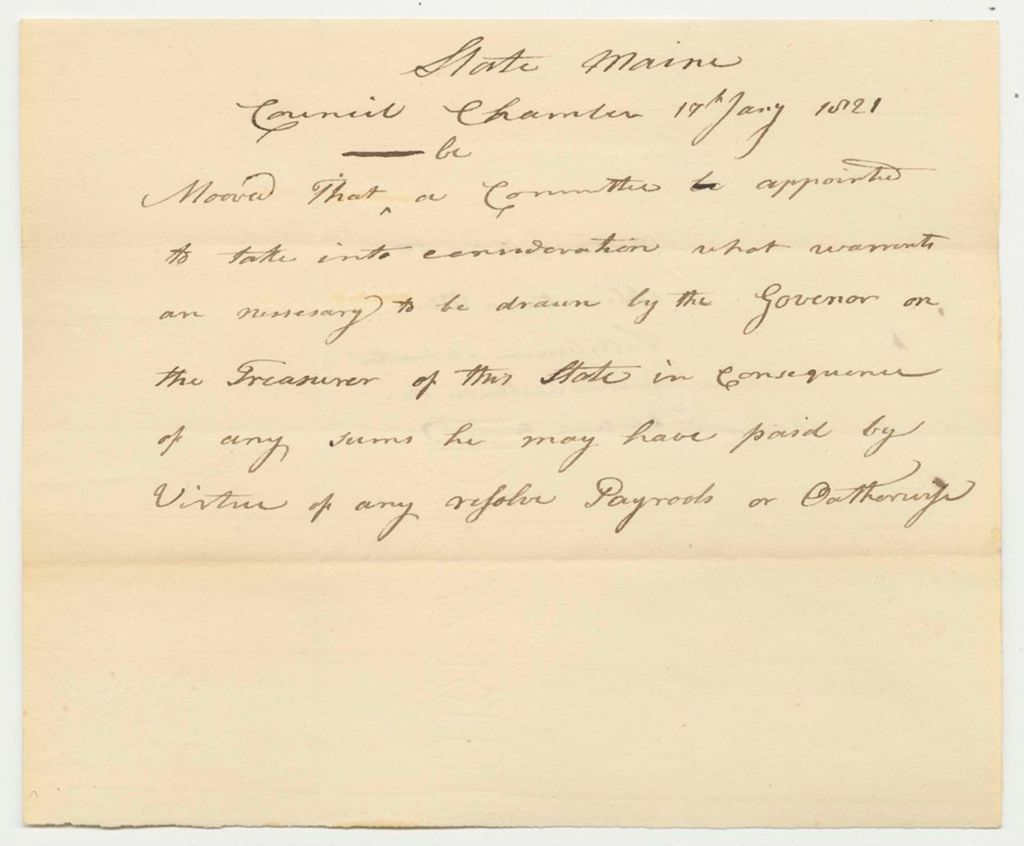 State Maine
Council Chamber 17th Jany 1821
be
Mooved That a Committee be appointed
to take into consideration what warrants
are nessesary to be drawn by the Govenor on
the Treasurer of this State in Consequence
of any sums he may have paid by
Virtue of any resolve Payrools or Oatherwise